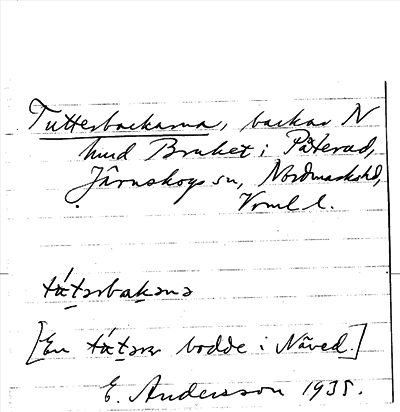 Tutterbackarna, backar N
hmd Bruket i Påterud,
Järnskogs sn, Nordmarkshd,
Vrml l.
tʉ́tərbakana
[En tʉ́tərər bodde i Näved.]
E. Andersson 1935.